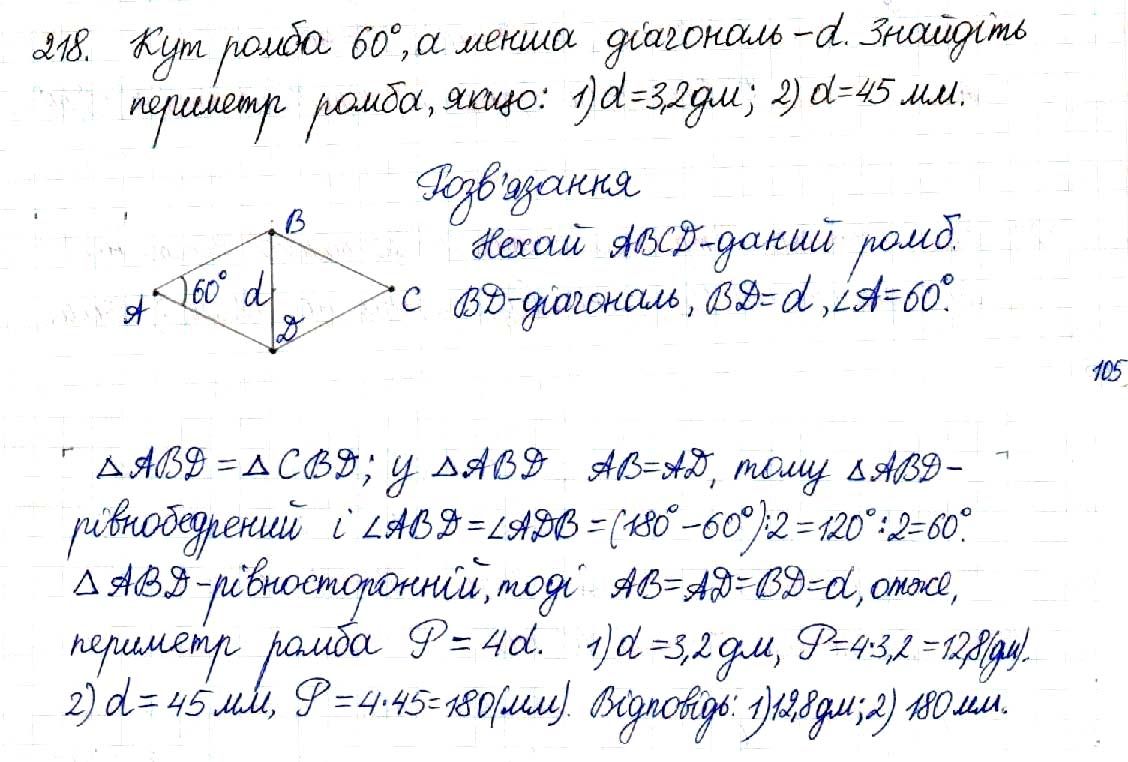 218. Кут ромба 60°, а менша діагональ – d. Знайдіть
периметр ромба, якщо: 1) d = 3,2 дм; 2) d = 45 мм.
Розв'язання
B
Нехай ABCD – даний ромб.
A 60° d C
BD – діагональ, BD = d, ∠A = 60°.
D
105
△ABD = △CBD; у △ABD AB = AD, тому △ABD –
рівнобедрений і ∠ABD = ∠ADB = (180° – 60°):2 = 120°:2 = 60°.
△ABD – рівносторонній, тоді AB = AD = BD = d, отже,
периметр ромба P = 4d. 1) d = 3,2 дм, P = 4·3,2 = 12,8 (дм).
2) d = 45 мм, P = 4·45 = 180 (мм). Відповідь: 1) 12,8 дм; 2) 180 мм.